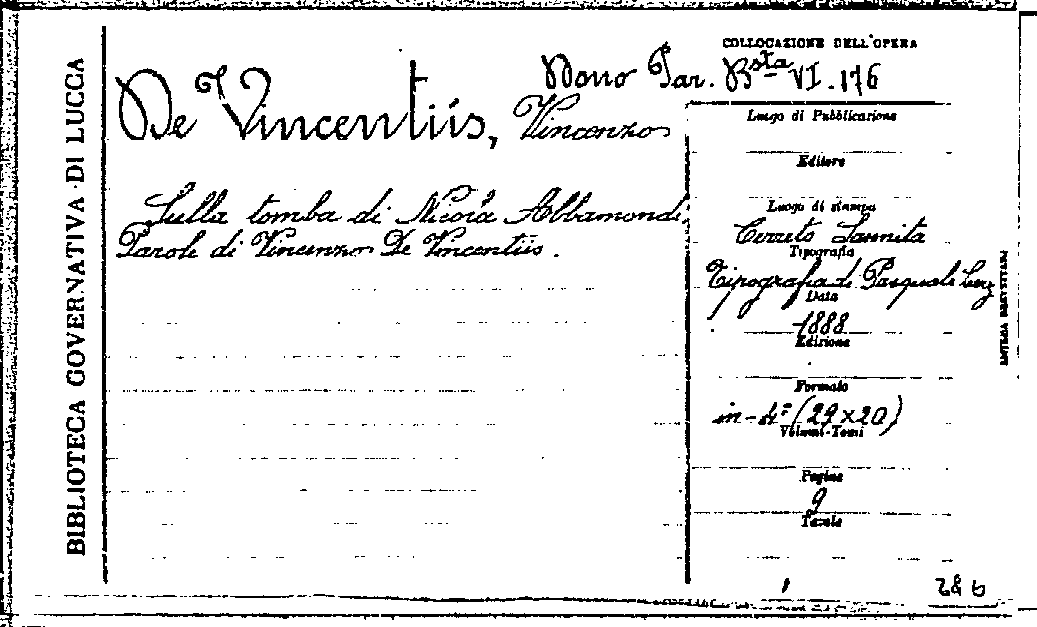 BIBLIOTECA GOVERNATIVA DI LUCCA
COLLOCAZIONE DELL'OPERA
Dono Par. Bsta VI. 176
De Vincentiis, Vincenzo
Sulla tomba di Nicola Abbamondi
Parole di Vincenzo De Vincentiis.
Luogo di Pubblicazione
Editore
Luogo di stampa
Cerreto Sannita
Tipografia
Tipografia di Pasquale
Data
1888
Edizione
Formato
in-4º (29×20)
Volumi-Tomi
Pagine
9
Tavole